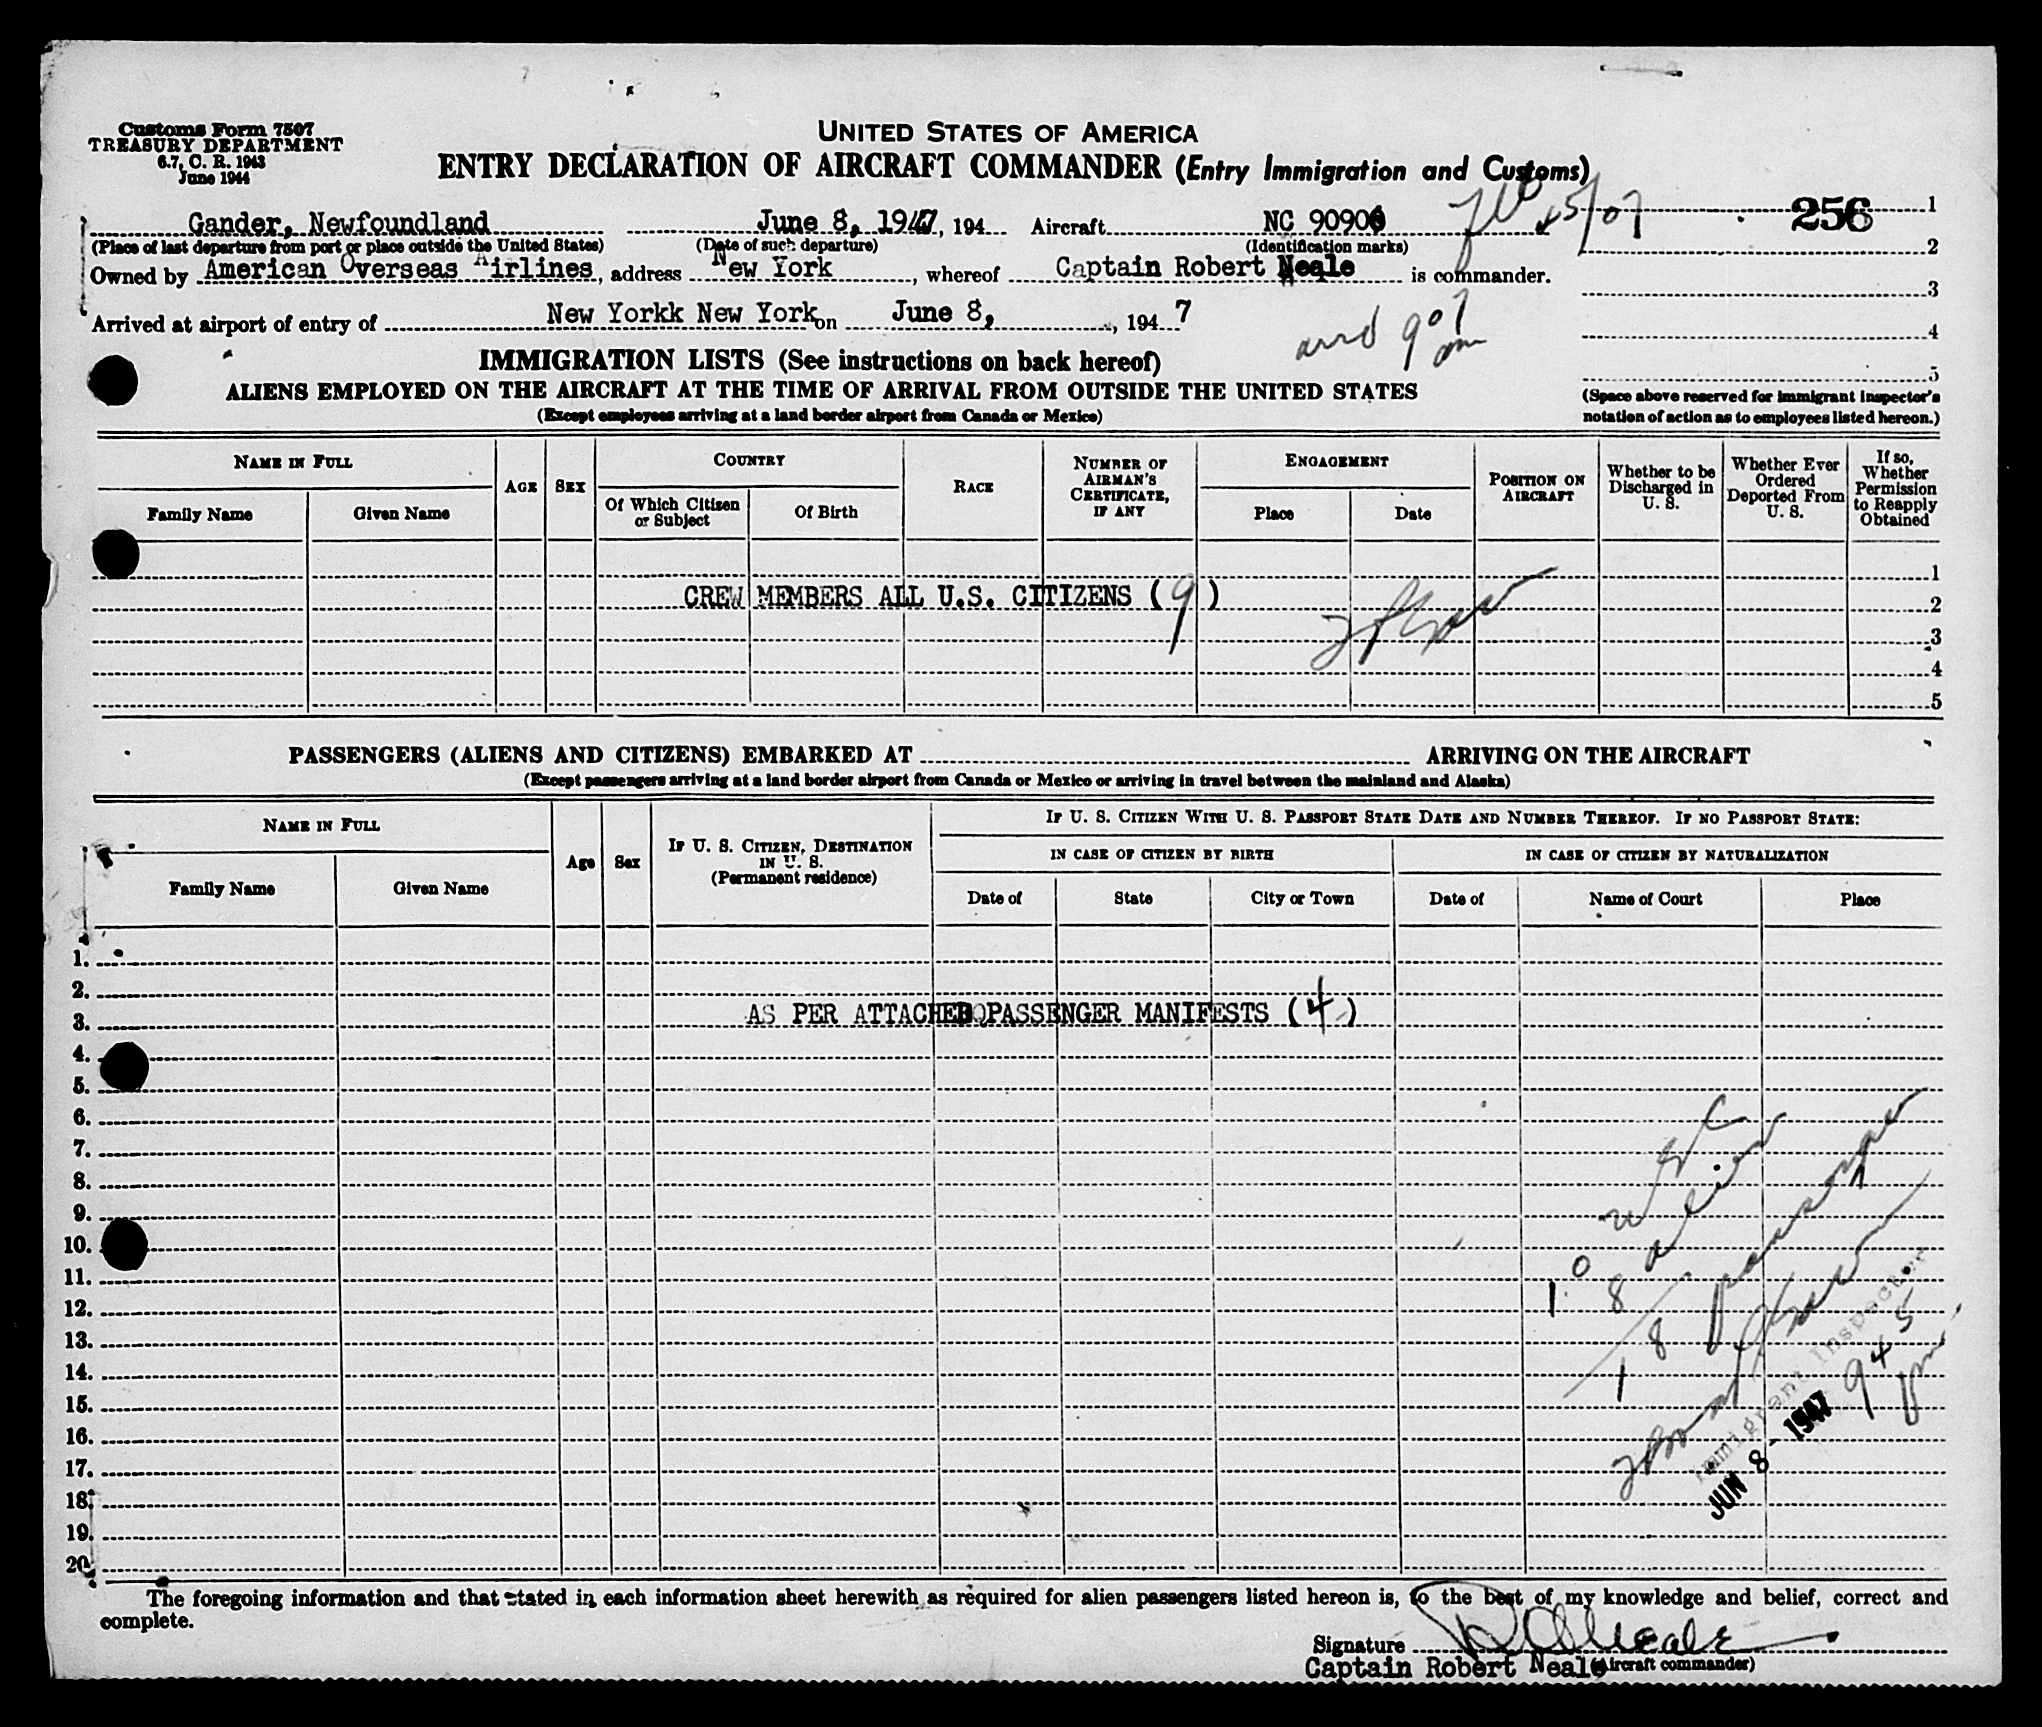 Customs Form 7507
TREASURY DEPARTMENT
6.7, C. R. 1943
June 1944
UNITED STATES OF AMERICA
ENTRY DECLARATION OF AIRCRAFT COMMANDER (Entry Immigration and Customs)
Gander, Newfoundland June 8, 1947, 194 Aircraft NC 90906 256 1
(Place of last departure from port or place outside the United States) (Date of such departure) (Identification marks) 2
Owned by American Overseas Airlines, address New York, whereof Captain Robert Neale is commander.
3
Arrived at airport of entry of New Yorkk New York on June 8, , 1947
arrd 9 07 am 4
IMMIGRATION LISTS (See instructions on back hereof)
5
ALIENS EMPLOYED ON THE AIRCRAFT AT THE TIME OF ARRIVAL FROM OUTSIDE THE UNITED STATES
(Except employees arriving at a land border airport from Canada or Mexico)
(Space above reserved for immigrant inspector's
notation of action as to employees listed hereon.)
NAME IN FULL
Family Name Given Name
AGE SEX
COUNTRY
Of Which Citizen or Subject Of Birth
RACE
NUMBER OF AIRMAN'S CERTIFICATE, IF ANY
ENGAGEMENT
Place Date
POSITION ON AIRCRAFT
Whether to be Discharged in U. S.
Whether Ever Ordered Deported From U. S.
If so, Whether Permission to Reapply Obtained
1
CREW MEMBERS ALL U.S. CITIZENS (9) 2
3
4
5
PASSENGERS (ALIENS AND CITIZENS) EMBARKED AT ARRIVING ON THE AIRCRAFT
(Except passengers arriving at a land border airport from Canada or Mexico or arriving in travel between the mainland and Alaska)
NAME IN FULL
Family Name Given Name
Age Sex
IF U. S. CITIZEN, DESTINATION IN U. S.
(Permanent residence)
IF U. S. CITIZEN WITH U. S. PASSPORT STATE DATE AND NUMBER THEREOF. IF NO PASSPORT STATE:
IN CASE OF CITIZEN BY BIRTH IN CASE OF CITIZEN BY NATURALIZATION
Date of State City or Town Date of Name of Court Place
1.
2.
AS PER ATTACHED PASSENGER MANIFESTS (4)
3.
4.
5.
6.
7.
8.
9.
10.
11.
12.
13.
14.
15.
16.
17.
18.
19.
20.
10 USC
8 alien
18 passenger
Immigrant Inspector
JUN 8 - 1947
9 45 pm
The foregoing information and that stated in each information sheet herewith as required for alien passengers listed hereon is, to the best of my knowledge and belief, correct and
complete.
Signature R Neale
Captain Robert Neale (Aircraft commander)